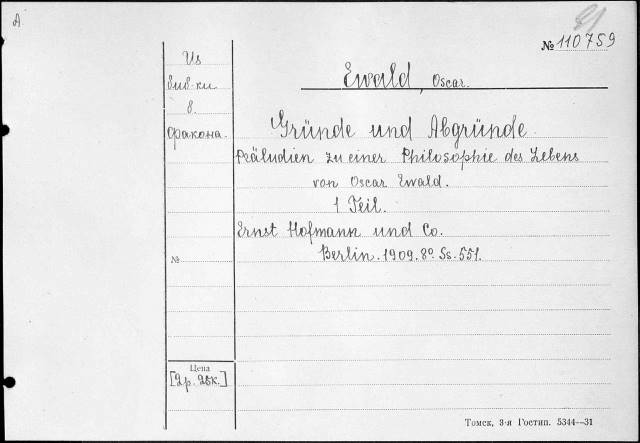 A.
21
№ 110759
Из
биб-ки
б.
Фракона.
Ewald, Oscar.
Gründe und Abgründe.
Präludien zu einer Philosophie des Lebens
von Oscar Ewald.
1 Teil.
Ernst Hofmann und Co.
Berlin. 1909. 8º Ss. 551.
№
Цена
[2р. 25к.]
Томск, 3-я Гостип. 5344—31